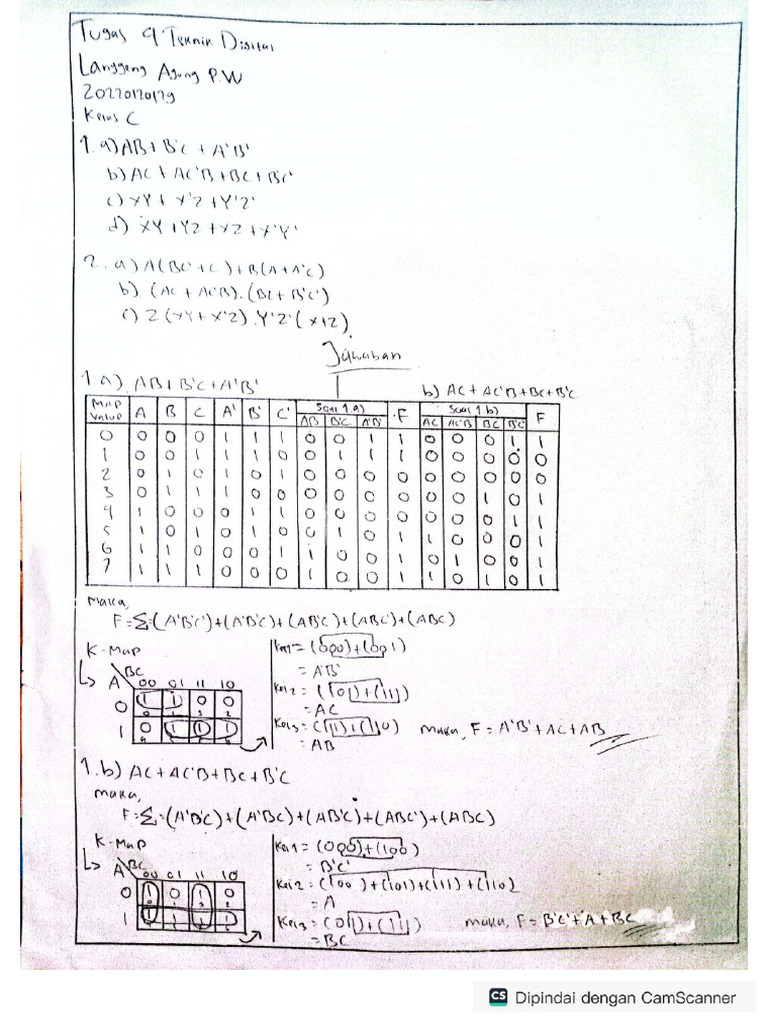 Tugas 4 Teknik Digital
Langgeng Agung P.W
20220120129
Kelas C
1. a) AB + B'C + A'B'
b) AC + AC'B + BC + B'C'
c) XY + X'Z + Y'Z'
d) XY + YZ + XZ + X'Y'
2. a) A(BC' + C) + B(A + A'C)
b) (AC + AC'B).(BC + B'C')
c) Z(XY + X'Z).Y'Z'(X+Z)
Jawaban
1 a) AB + B'C + A'B' b) AC + AC'B + BC + B'C
MAP Value A B C A' B' C' Soal 1.a) F Soal 1.b) F
AB B'C A'B' AC AC'B BC B'C'
0 0 0 0 1 1 1 0 0 1 1 0 0 0 1 1
1 0 0 1 1 1 0 0 1 1 1 0 0 0 0 0
2 0 1 0 1 0 1 0 0 0 0 0 0 0 0 0
3 0 1 1 1 0 0 0 0 0 0 0 0 1 0 1
4 1 0 0 0 1 1 0 0 0 0 0 0 0 1 1
5 1 0 1 0 1 0 0 1 0 1 1 0 0 0 1
6 1 1 0 0 0 1 1 0 0 1 0 1 0 0 1
7 1 1 1 0 0 0 1 0 0 1 1 0 1 0 1
Maka,
F = Σ = (A'B'C') + (A'B'C) + (AB'C) + (ABC') + (ABC)
K-Map
BC
A 00 01 11 10
0 1 1 0 0
0 1 3 2
1 0 1 1 1
4 5 7 6
Kel 1 = (000) + (001)
= A'B'
Kel 2 = (101) + (111)
= AC
Kel 3 = (111) + (110) maka, F = A'B' + AC + AB
= AB
1.b) AC + AC'B + BC + B'C
maka,
F = Σ = (A'B'C) + (A'BC) + (AB'C) + (ABC') + (ABC)
K-Map
A BC 00 01 11 10
0 1 0 1 0
1 1 1 1 1
Kel 1 = (000) + (100)
= B'C'
Kel 2 = (100) + (101) + (111) + (110)
= A
Kel 3 = (011) + (111) maka, F = B'C' + A + BC
= BC
CS Dipindai dengan CamScanner